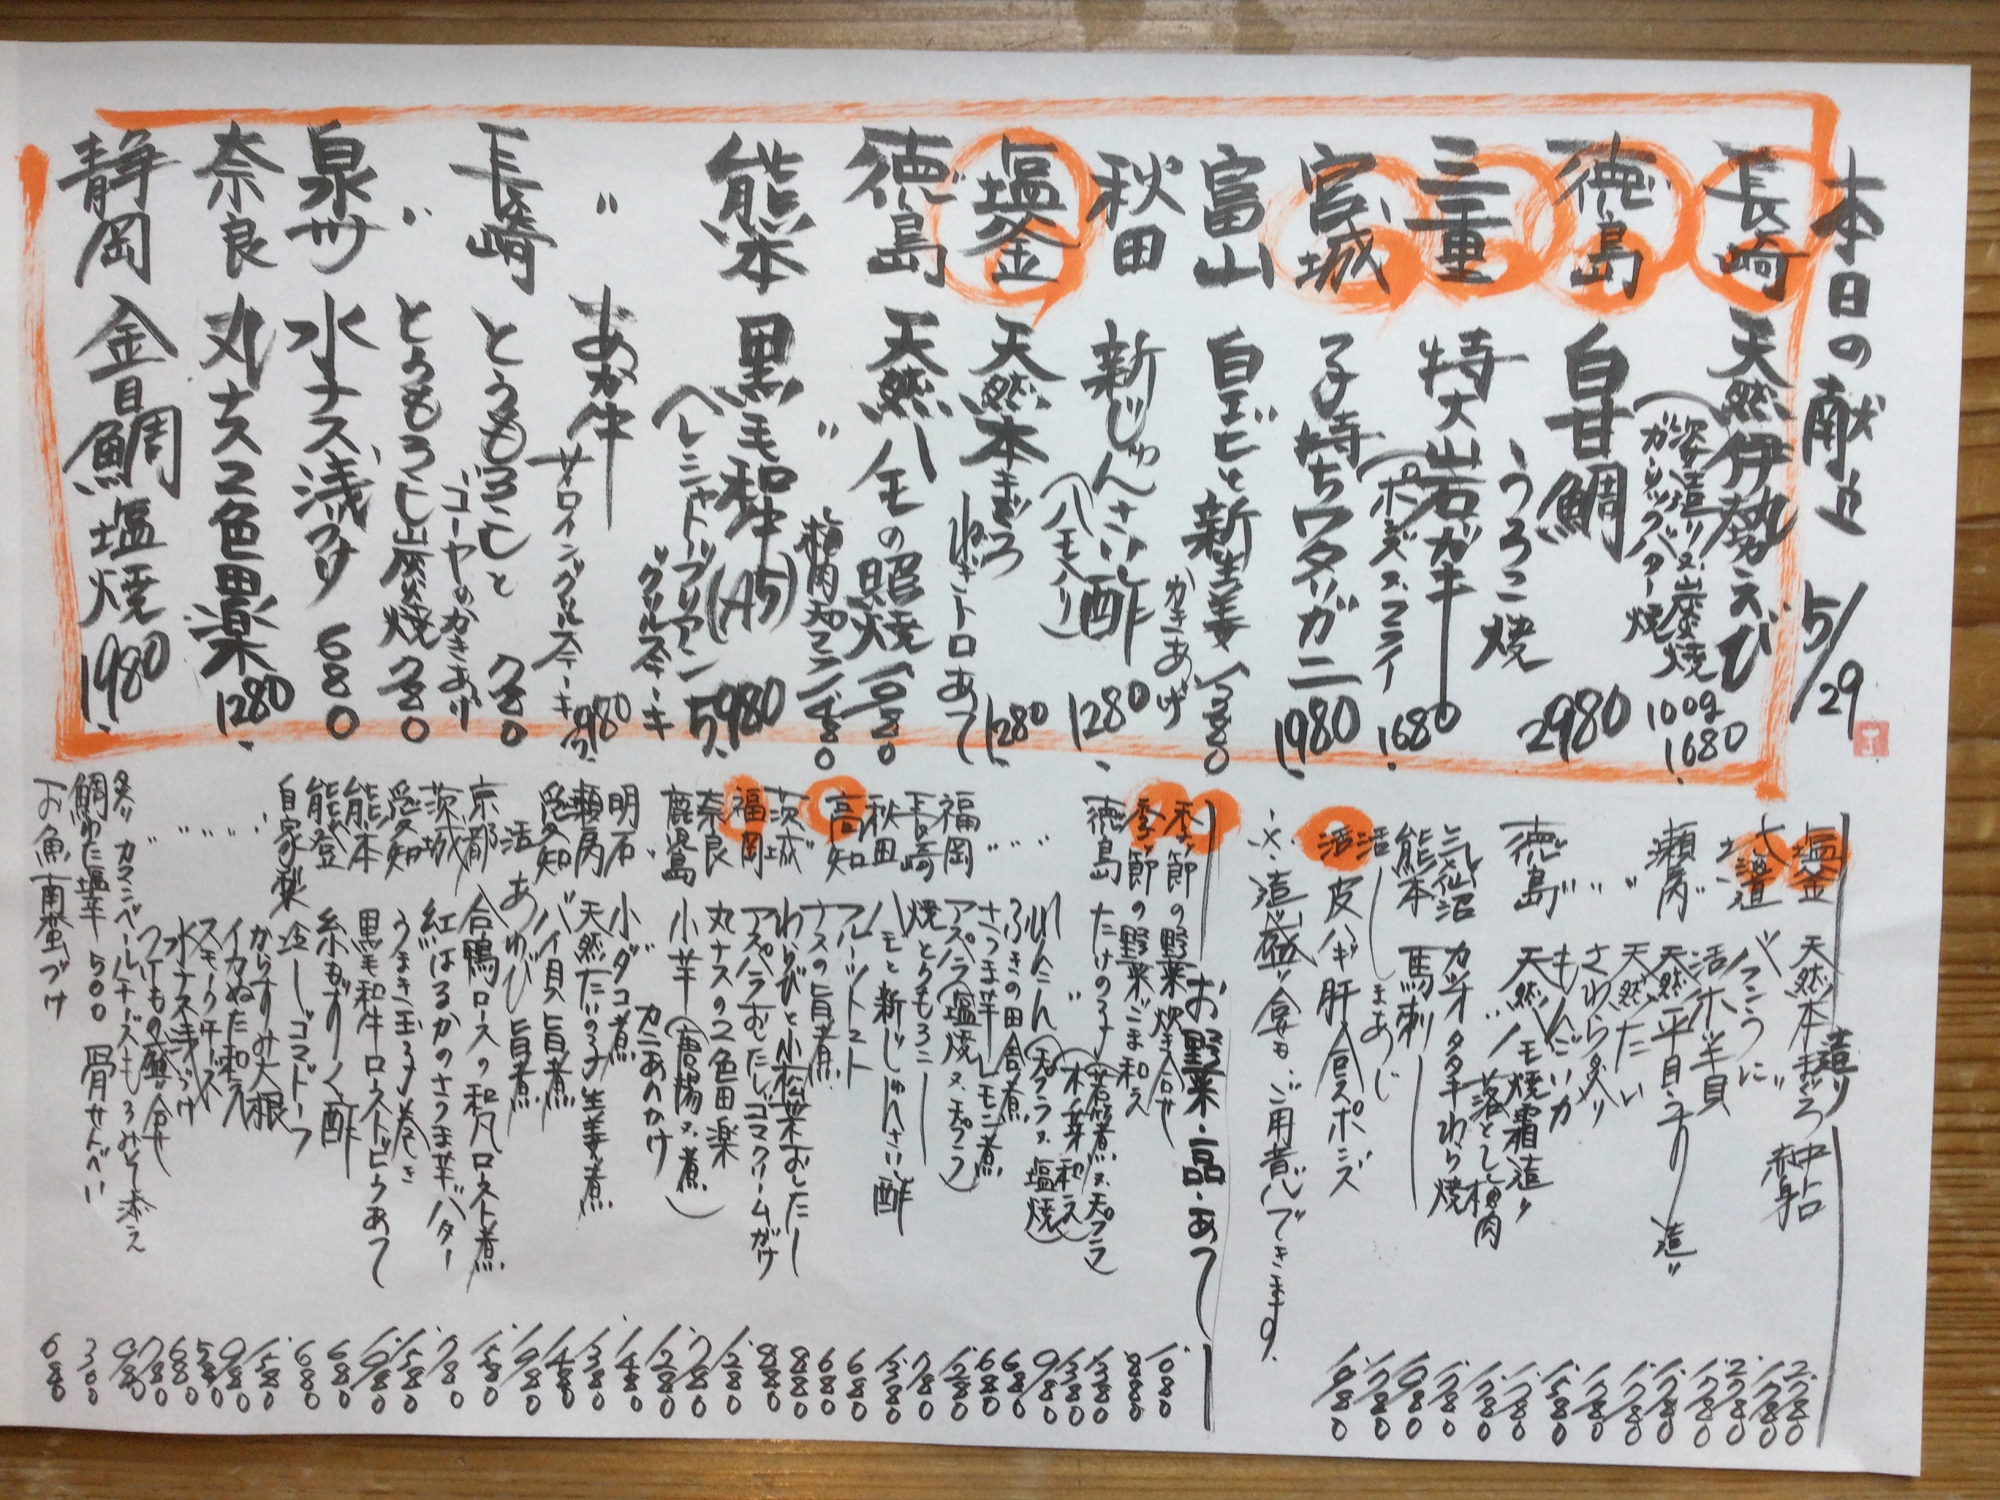 本日の献立 5/29
長崎 天然伊勢えび
(姿造り又ハ炭焼 100g 1680
ガーリックバター焼
徳島 白甘鯛
うろこ焼 2980
三重 特大岩ガキ
(ポンズ又ハフライ 1680
宮城 子持ちワタリガニ 1980
富山 白エビと新生姜 1380
かきあげ
秋田 新じゅんさい酢 1280
(ハモ入り)
塩釜 天然本まぐろ
ねぎトロあて 1280
徳島 天然ハモの照焼 1380
〃 梅肉天プラ 1480
熊本 黒毛和牛(A5) 5980
(シャトーブリアン
グリルステーキ
〃 あか牛
サーロイングリルステーキ
長崎 とうもろこしと 780
ゴーヤのかきあげ
〃 とうもろこし炭焼 780
泉州 水ナス浅づけ 680
奈良 丸ナス2色田楽 1280
静岡 金目鯛塩焼 1980
造り
塩釜 天然本まぐろ 中トロ 2780
赤身 1780
北海道 バフンうに 2780
活ホッキ貝 1780
瀬戸内 天然平目 造り 1780
〃 天然たい 1780
〃 さわらタタキ 1780
〃 もんごいか 1580
徳島 天然ハモ焼霜造り 1780
〃 〃 落とし梅肉 1780
気仙沼 カツオタタキわら焼 1780
熊本 馬刺し 1980
活 しまあじ 1780
活 皮ハギ肝合えポンズ 1980
※造り盛り合せもご用意できます。
お野菜・一品・あて
季節の野菜炊き合せ 1080
季節の野菜ごま和え 880
徳島 たけのこ(若筍煮又ハ天プラ 1380
〃 (木ノ芽和え) 1380
れんこん(天プラ又ハ塩焼) 980
〃 ふきの田舎煮 680
〃 さつま芋レモン煮 680
福岡 アスパラ(塩焼又ハ天プラ) 1280
長崎 焼とうもろこし 780
秋田 ハモと新じゅんさい酢 1380
高知 フルーツトマト 680
ナスの旨煮 680
茨城 わらびと小松菜おひたし 880
福岡 アスパラおひたしゴマクリームがけ 880
奈良 丸ナスの2色田楽 1280
鹿児島 小芋(唐揚又ハ煮) 780
〃 カニあんかけ 1280
明石 小ダコ煮 1480
瀬戸内 天然たいの子生姜煮 1380
愛知 バイ貝旨煮 1480
活 あわび旨煮 1980
京都 合鴨ロースの和風ロースト煮 1580
茨城 紅はるかのさつま芋バター 780
愛知 うまき玉子巻き 1580
熊本 黒毛和牛ローストビーフあて 1980
能登 糸もずく酢 680
自家製 冷しゴマドーフ 680
〃 からすみ大根 1580
〃 イカぬた和え 980
〃 スモークチーズ 580
〃 水ナス浅づけ 680
つけもの盛り合せ 780
炙りカマンベールチーズもろみそ添え 980
鯛わた塩辛 500 骨せんべい 300
お魚南蛮づけ 680